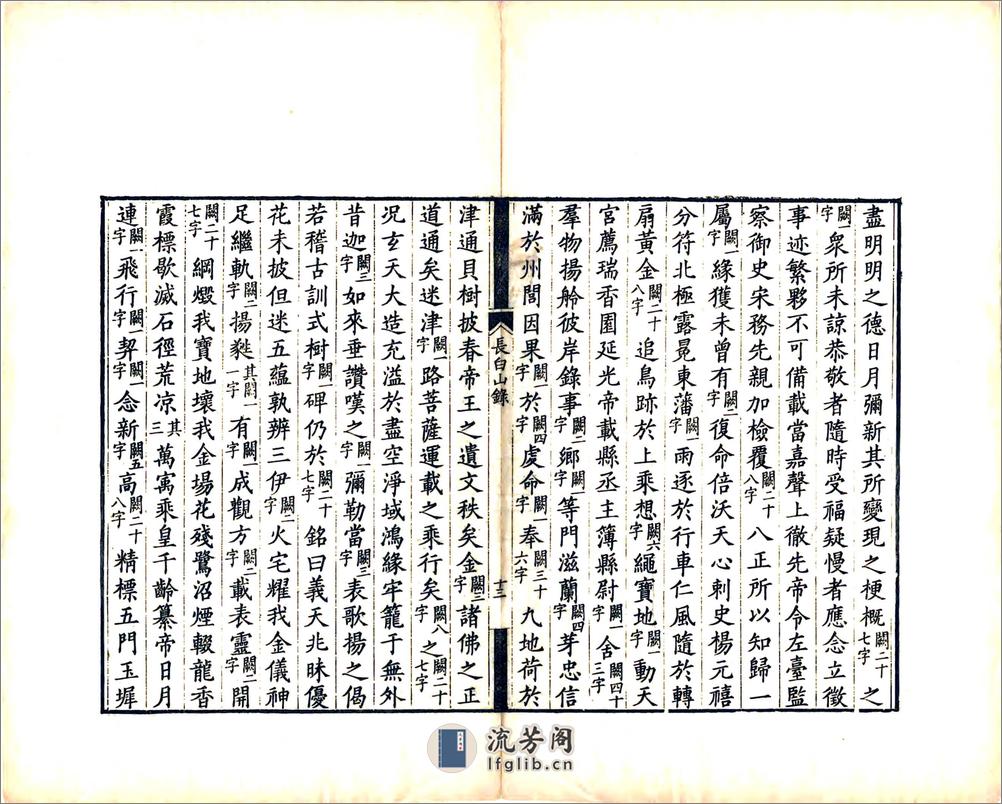 盡明明之德日月彌新其所變現之梗概闕二十七字之
闕一字衆所未諒恭敬者隨時受福疑慢者應念立徵
事迹繁夥不可備載當嘉聲上徹先帝令左臺監
察御史宋務先親加檢覆闕二十八字八正所以知歸一
屬闕一字緣獲未曾有闕二字復命倍沃天心刺史楊元禧
分符北極露冕東藩闕一字雨逐於行車仁風隨於轉
扇黃金闕二十八字追鳥跡於上乘想闕六字繩寶地闕一字動天
宮薦瑞香園延光帝載縣丞主簿縣尉闕一字舍闕四十三字
羣物揚舲彼岸錄事闕二字鄉闕一字等門滋蘭闕四字芽忠信
滿於州閭因果闕一字於闕四字虔命闕一字奉闕三十六字九地荷於
長白山錄
十三
津通貝樹披春帝王之遺文秩矣金闕三字諸佛之正
道通矣迷津闕一字路菩薩運載之乘行矣闕八字之闕二十七字
況玄天大造充溢於盡空淨域鴻緣牢籠于無外
昔迦闕三字如來垂讚嘆之闕一字彌勒當闕三字表歌揚之偈
若稽古訓式樹闕一字碑仍於闕二十七字銘曰義天兆昧優
花未披但迷五蘊孰辨三伊闕二字火宅耀我金儀神
足繼軌闕二字揚㲋其闕一字有闕一字成觀方闕二字載表靈闕二字開
闕二十七字綱燬我寶地壞我金場花殘鷺沼煙輟龍香
霞標歇滅石徑荒涼其三萬寓乘皇千齡纂帝日月
連闕一字飛行闕一字契闕一字念新闕五字高闕二十八字精標五門玉墀
流芳阁
lfglib.cn